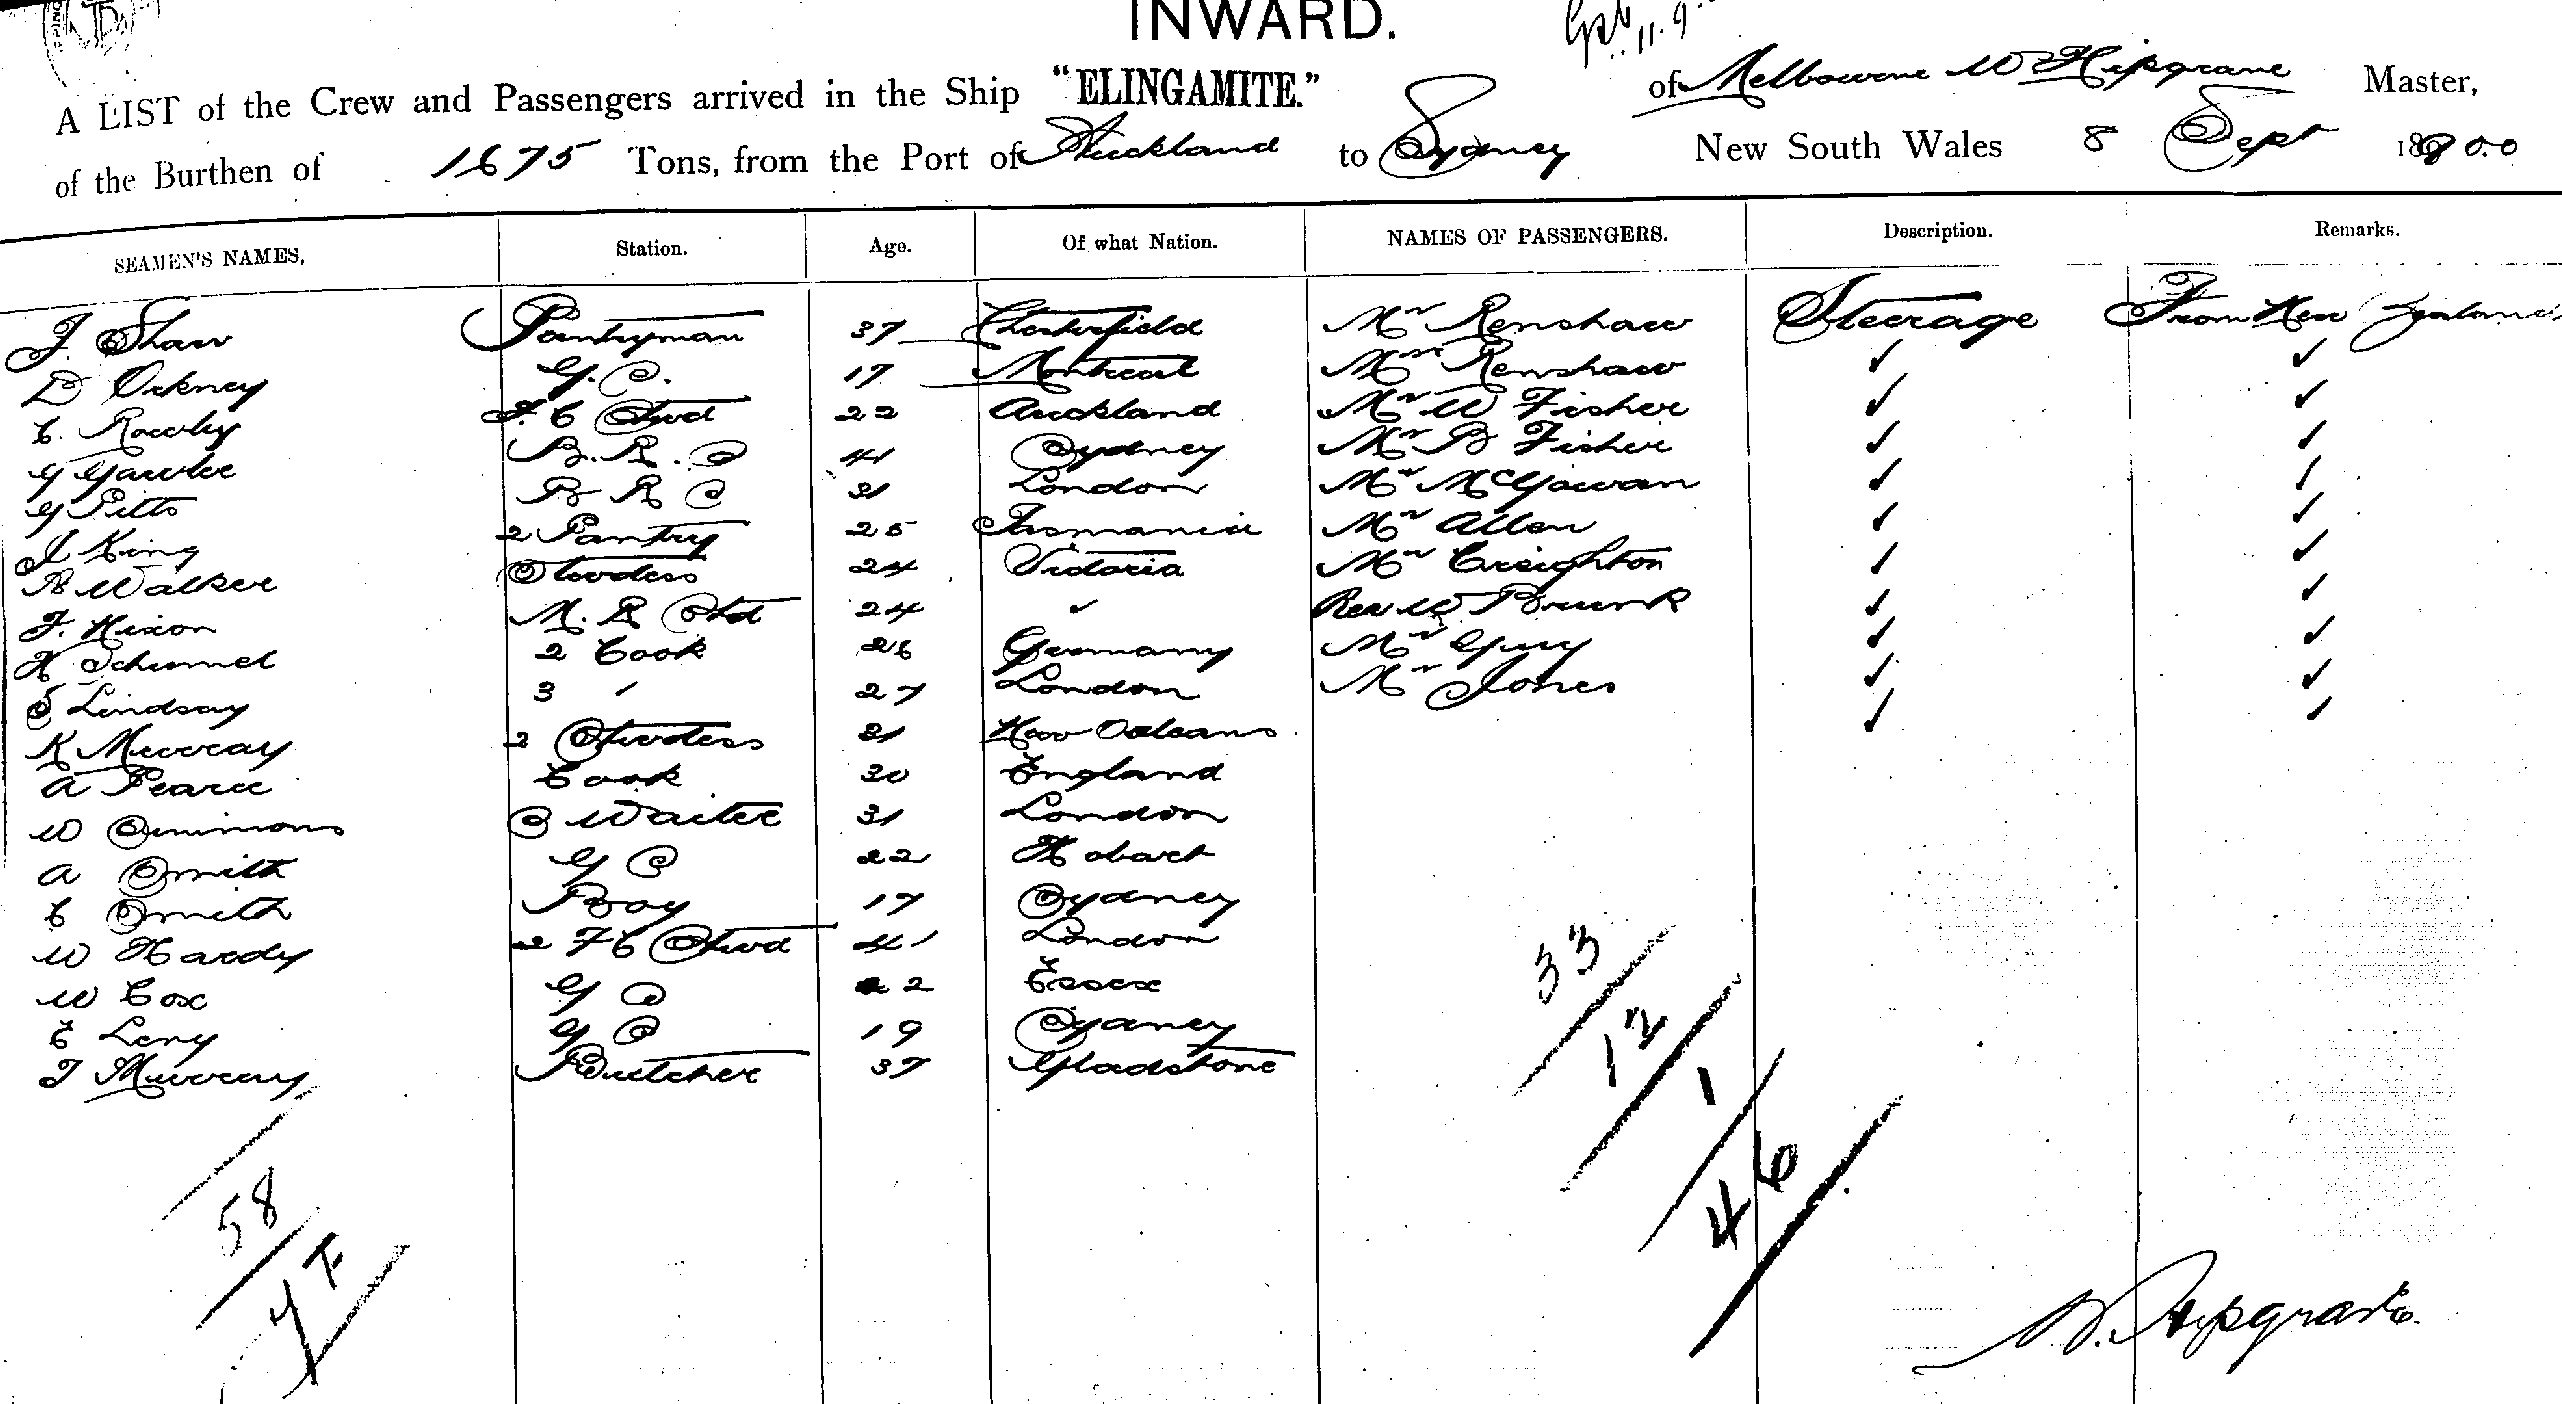 INWARD.
A LIST of the Crew and Passengers arrived in the Ship "ELINGAMITE." of Melbourne W Hipgrave Master,
of the Burthen of 1675 Tons, from the Port of Auckland to Sydney New South Wales 8 Sept 1900
SEAMEN'S NAMES. Station. Age. Of what Nation. NAMES OF PASSENGERS. Description. Remarks.
J. Shaw Pantryman 37 Chesterfield Mr Renshaw Steerage From New Zealand
D Orkney G. S. 17 Montreal Mrs Renshaw ✓ ✓
C. Rowley F. C Stwd 22 Auckland Mr W Fisher ✓ ✓
G Gawler B. R. S 41 Sydney Mr B Fisher ✓ ✓
G Pitts B R S 21 London Mr McGowan ✓ ✓
J King 2 Pantry 25 Tasmania Mr Allen ✓ ✓
B Walker Stwdess 24 Victoria Mr Creighton ✓ ✓
F. Nixon M. R Std 24 ✓ Rev W ✓ ✓
H Schimmel 2 Cook 26 Germany Mr Guy ✓ ✓
S Lindsay 3 " 27 London Mr Jones ✓ ✓
K Murray 2 Stwdess 21 New Orleans ✓ ✓
A Pearce Cook 30 England
W Simmons S Waiter 31 London
A Smith G S 22 Hobart
C Smith Boy 17 Sydney
W Hardy 2 F C Stwd 41 London
W Cox G S 22 Essex
E Levy G S 19 Sydney
T Murray Butcher 37 Gladstone
33
12
1
46
58
W. Hipgrave